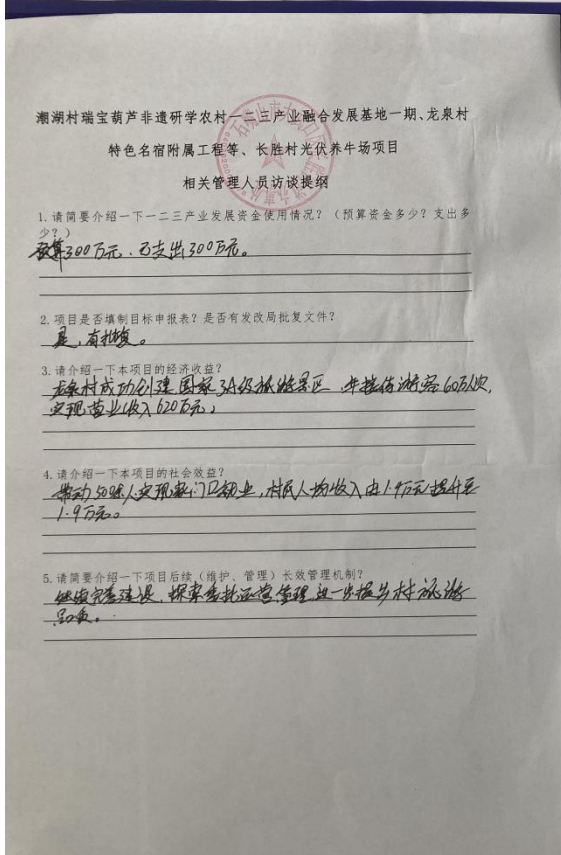 潮湖村瑞宝葫芦非遗研学农村一二三产业融合发展基地一期、龙泉村
特色名宿附属工程等、长胜村光伏养牛场项目
相关管理人员访谈提纲
1.请简要介绍一下一二三产业发展资金使用情况?(预算资金多少?支出多
少?)
预算300万元,已支出300万元。
2.项目是否填制目标申报表?是否有发改局批复文件?
是,有批复。
3.请介绍一下本项目的经济收益?
龙泉村成功创建国家3A级旅游景区,年接待游客60万人次,
实现营业收入620万元,
4.请介绍一下本项目的社会效益?
带动50余人实现家门口就业,村民人均收入由1.9万元提升至
1.9万元。
5.请简要介绍一下项目后续(维护、管理)长效管理机制?
继续完善建设,探索委托运营管理进一步提乡村旅游
品质。